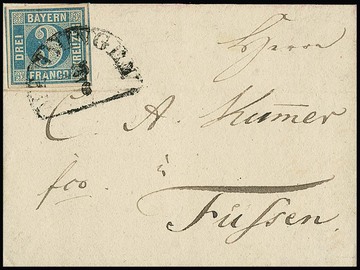 BAYERN
DREI
3
KREUZER
FRANCO
Herrn
C. A. Kummer
fco.
Füssen.